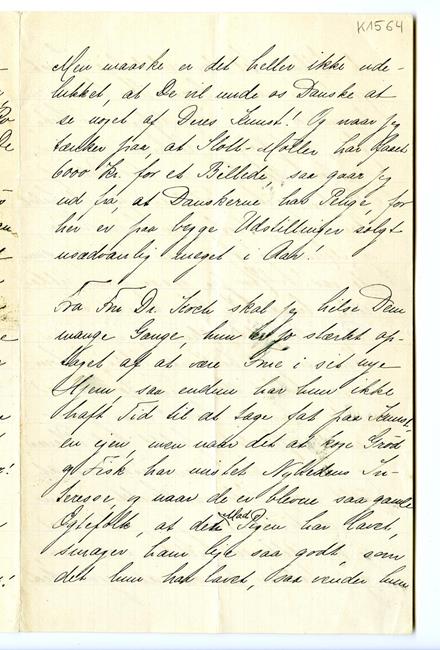 K1564
Men maaske er det heller ikke ude-
lukket, at De vil unde os Danske at
se noget af Deres Kunst! Og naar jeg
tænker paa, at Slott-Møller har faaet
6000 Kr. for et Billede, saa gaar jeg
ud fra, at Danskerne har Penge, for
her er paa begge Udstillinger solgt
usædvanlig meget i Aar!
Fra Fru Dr. Koch skal jeg hilse Dem
mange Gange, hun er jo stærkt op-
taget af at være Frue i sit nye
Hjem, saa endnu har hun ikke
haft Tid til at tage fat paa Kunst
en igen, men naar det at koge Grød
og Fisk har mistet Nyhedens In-
teresse og naar de er blevne saa gamle
Ægtefolk, at det Mad Pigen har lavet,
smager ham lige saa godt, som
det hun har lavet, saa vender hun